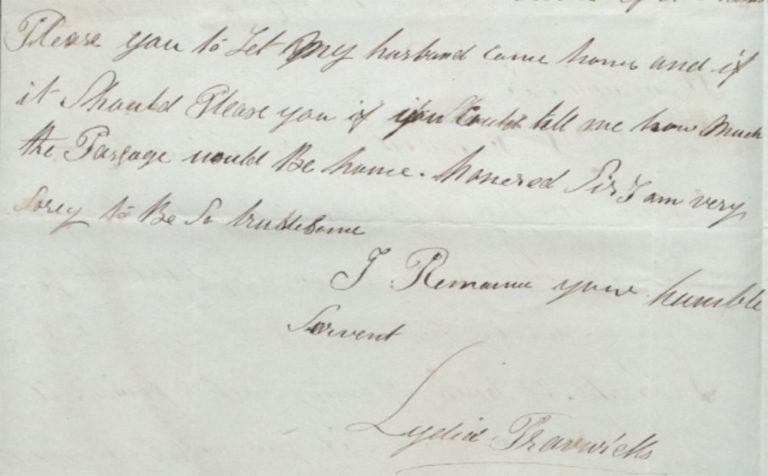 Please you to Let My husband come home and if
it Should Please you if you Could tell me how Much
the Passage would Be home. honered Sir I am very
Sorey to Be So trublesome
I Remaine your humble
Servent
Lydia